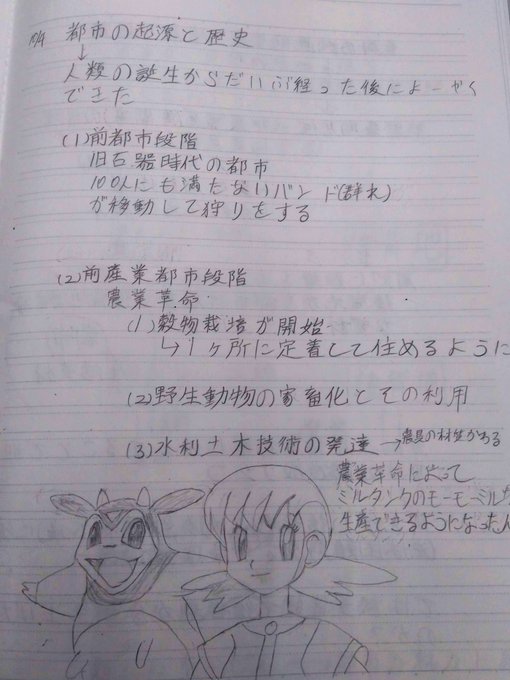 都市の起源と歴史
↓
人類の誕生からだいぶ経った後によーやく
できた
(1)前都市段階
旧石器時代の都市
100人にも満たないバンド(群れ)
が移動して狩りをする
(2)前産業都市段階
農業革命
(1)穀物栽培が開始
↳1ヶ所に定着して住めるように
(2)野生動物の家畜化とその利用
(3)水利土木技術の発達→農具の
農業革命によって
ミルタンクのモーモーミルク
生産できるようになった人